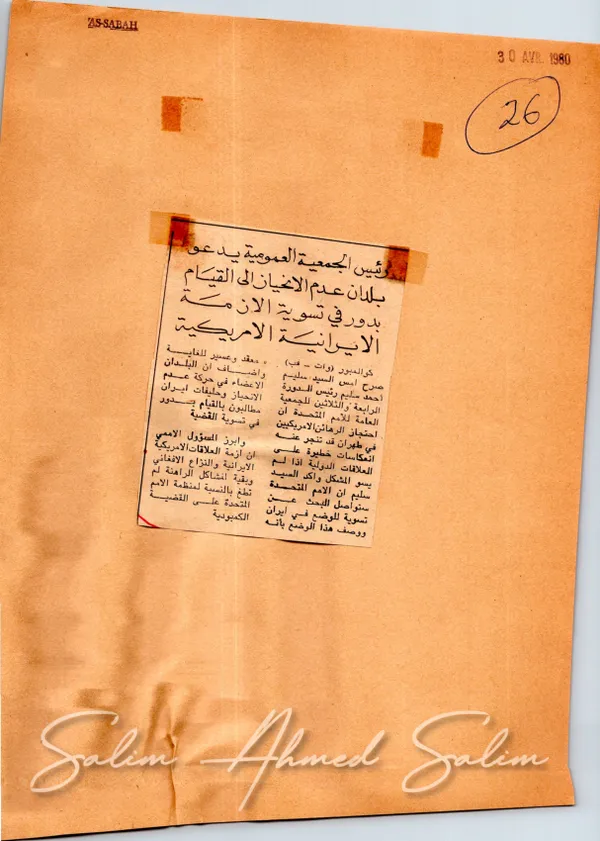 ZS-SABAH
30 AVR. 1980
26
رئيس الجمعية العمومية يدعو
بلدان عدم الانحياز الى القيام
بدور في تسوية الازمة
الايرانية الامريكية
كوالمبور (وات - فب)
صرح امس السيد سليم
احمد سليم رئيس الدورة
الرابعة والثلاثين للجمعية
العامة للامم المتحدة ان
احتجاز الرهائن الامريكيين
في طهران قد تنجر عنه
انعكاسات خطيرة على
العلاقات الدولية اذا لم
يسو المشكل واكد السيد
سليم ان الامم المتحدة
ستواصل البحث عن
تسوية للوضع في ايران
ووصف هذا الوضع بانه
« معقد وعسير للغاية
واضاف ان البلدان
الاعضاء في حركة عدم
الانحياز وحليفات ايران
مطالبون بالقيام بدور
في تسوية القضية
وابرز المسؤول الاممي
ان ازمة العلاقات الامريكية
الايرانية والنزاع الافغاني
وبقية المشاكل الراهنة لم
تطغ بالنسبة لمنظمة الامم
المتحدة على القضية
الكمبودية
Salim Ahmed Salim